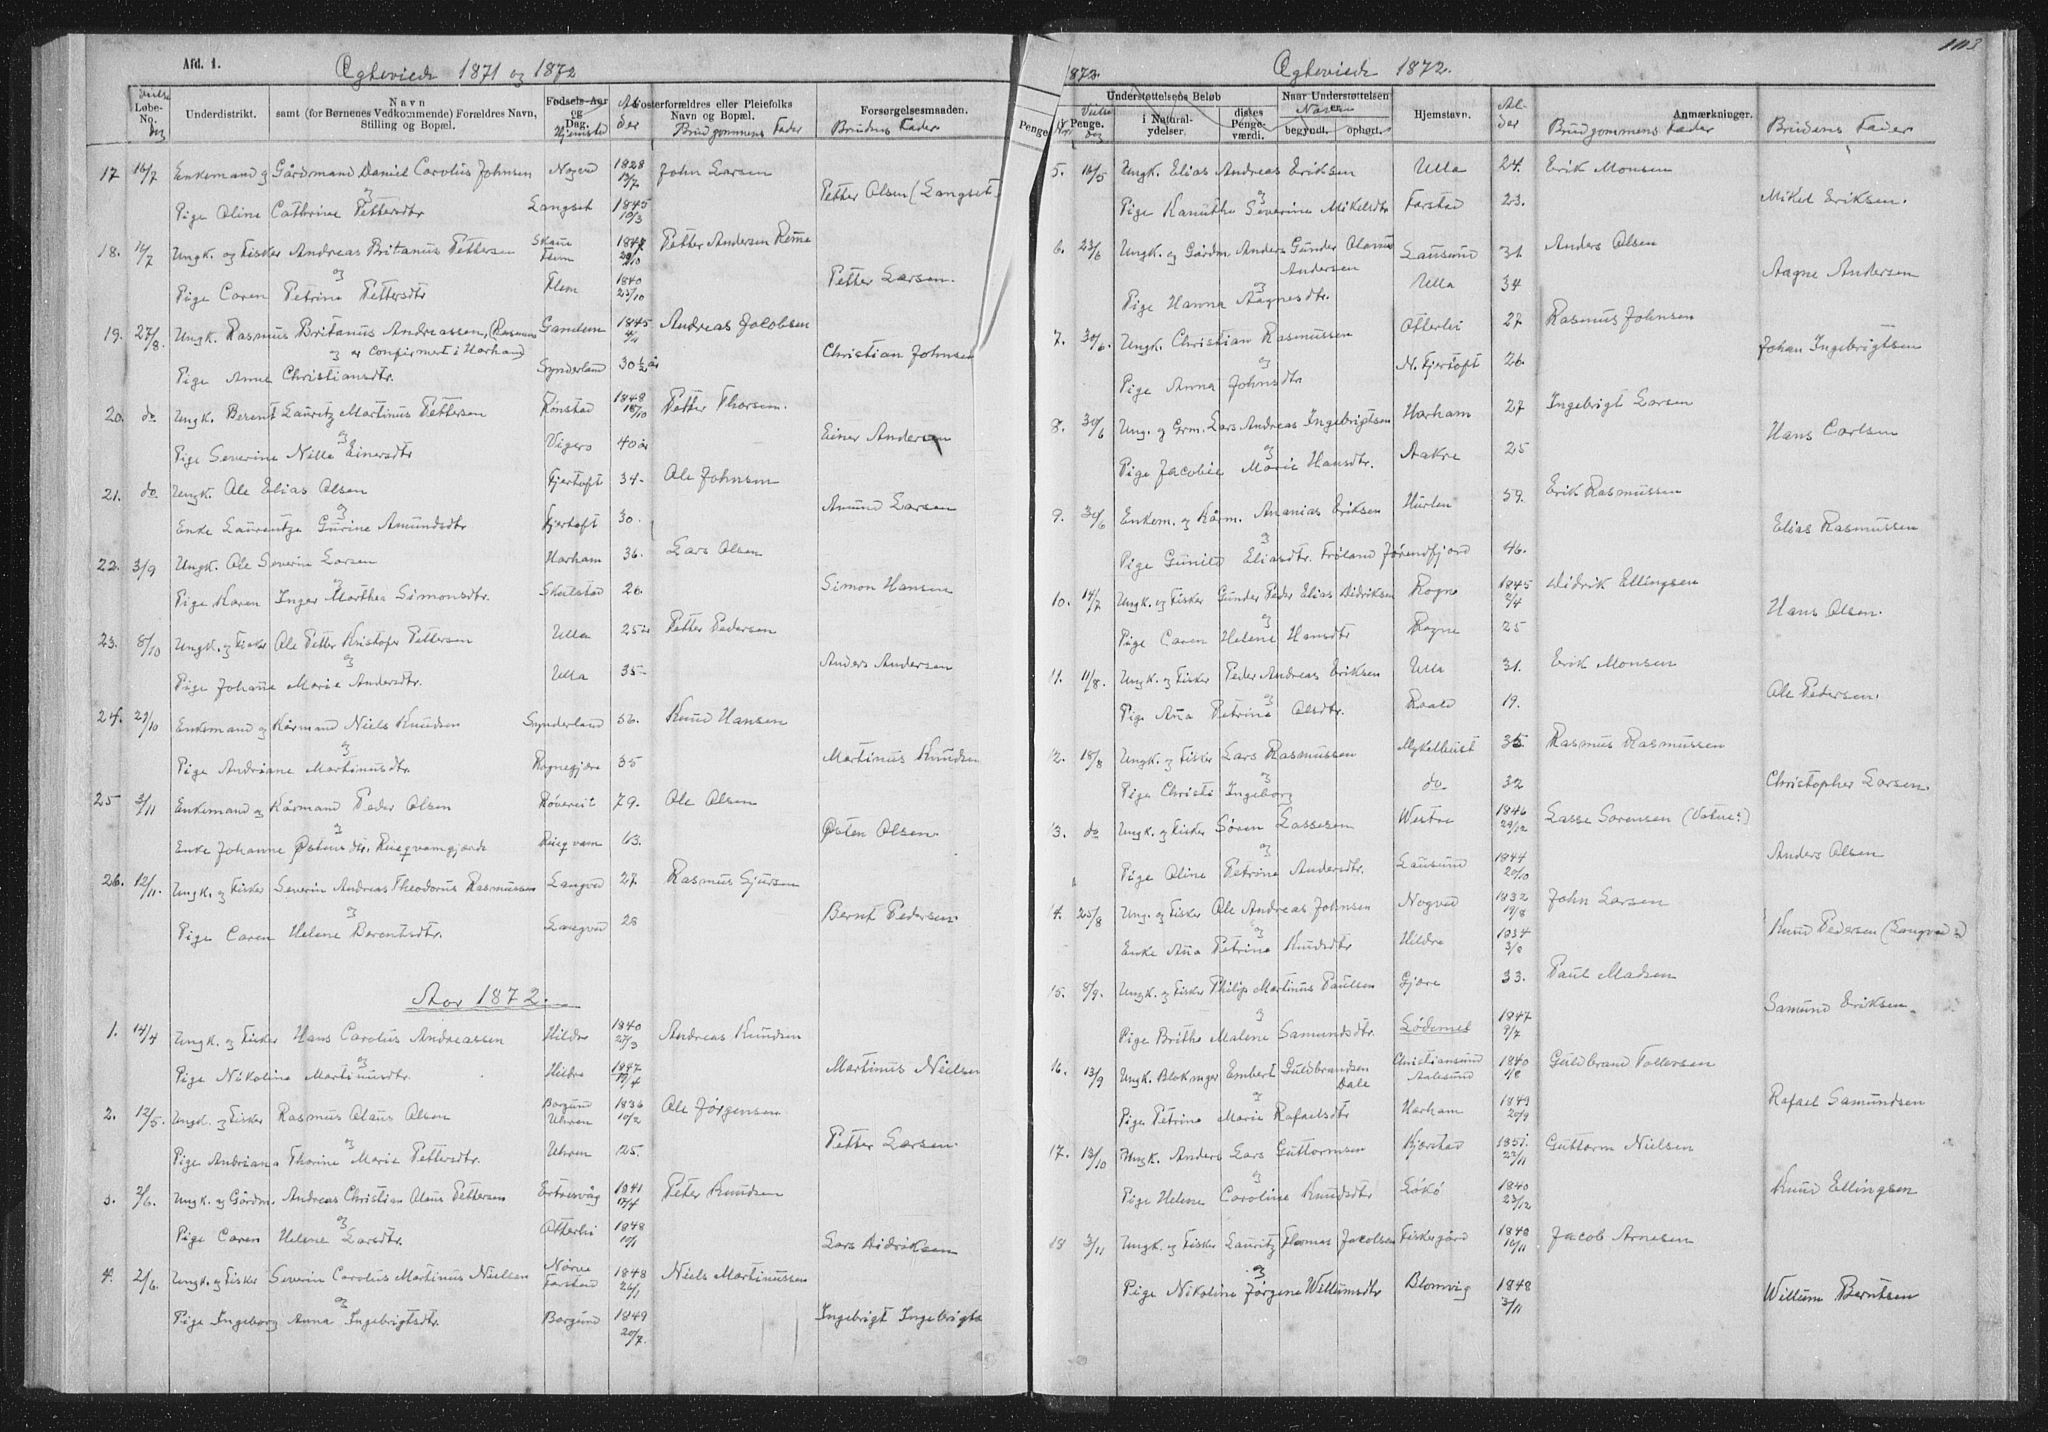 Afd. 1.
Ægteviede 1871 og 1872
Løbe-No. Underdistrikt. Navn samt (for Børnenes Vedkommende) Forældres Navn, Stilling og Bopæl. Fødsels-Aar og Dag. Hjemsted Alder Fosterforældres eller Pleiefolks Navn og Bopæl. Brudgommens Fader Forsørgelsesmaaden. Brudens Fader
17 16/7 Enkemand og Gårdmand Daniel Carolus Johnsen Nogved 1828 13/7 John Larsen
og
Pige Oline Cathrine Pettersdtr Langset 1845 10/3 Petter Olsen (Langset)
18. 16/7 Ungk. og Fisker Andreas Britanus Pettersen Flem Petter Andersen
og
Pige Caren Petrine Pettersdtr Flem 1840 25/10 Petter Larsen.
19. 27/8. Ungk. Rasmus Britanus Andreassen, (Rasmus Gamlem 1845 Andreas Jacobsen
og er confirmert i Harham)
Pige Anne Christiansdtr. Synderland 30 1/2 år Christian Johnsen
20. do Ungk. Berent Lauritz Martinus Pettersen Rønstad 1848 18/10 Petter Thorsen.
og
Pige Severine Nille Einersdtr Vigero 40 år Einer Andersen
21. do Ungk. Ole Elias Olsen Fjertoft 34. Ole Johnsen
og
Enke Laurentze Gurine Amundsdtr Fjertoft 30. Amund Larsen
22. 3/9 Ungk. Ole Severin Larsen Harham 36. Lars Olsen
og
Pige Karen Inger Marthea Simonsdtr. Skulstad 26. Simon Hansen
23. 8/10 Ungk. og Fisker Ole Petter Kristofer Pettersen Ulla 25 år Petter Pedersen
og
Pige Johane Marie Andersdtr. Ulla 35 Anders Andersen
24. 29/10 Enkemand og Kårmand Niels Knudsen Synderland 56. Knud Hansen
og
Pige Andriane Martinusdtr. Rognegjære 35 Martinus Knudsen
25 3/11 Enkemand og Kårmand Peder Olsen Røvereit 79. Ole Olsen
og
Enke Johanne Østensdtr. 63. Østen Olsen.
26. 12/11. Ungk. og Fisker Severin Andreas Theodorus Rasmussen Langved 27 Rasmus Sjursen
og
Pige Caren Helene Berentsdtr. Langved 28 Bernt Pedersen.
Aar 1872.
1. 14/4 Ungk. og Fisker Hans Carolus Andreassen Hildre 1840 27/3 Andreas Knudsen
og
Pige Nikoline Martinusdtr. Hildre 1847 19/4 Martinus Nielsen
2. 12/5. Ungk. og Fisker Rasmus Olaus Olsen Borgund Uhren 1836 10/2 Ole Jørgensen
og
Pige Andriana Thorine Marie Pettersdtr. Uhren 25. Petter Larsen.
3. 2/6. Ungk. og Gårdm. Andreas Christian Olaus Pettersen Ertresvåg 1841 17/4 Peter Knudsen
og
Pige Caren Helene Larsdtr. Otterlei 1848 10/1 Lars Didriksen
4. 2/6. Ungk. og Fisker Severin Carolus Martinus Nielsen Nørve Farstad 1848 26/1 Niels Martinussen
og
Pige Ingeborg Anna Ingebrigtsdtr. Borgund 1849 20/7. Ingebrigt Ingebrigts
103
1872.
Ægteviede 1872.
Understøttelsens Beløb Penge. i Natural-ydelser. disses Penge-værdi. Naar Understøttelsen begyndt. ophørt. Navn Hjemstavn. Alder Anmærkninger. Brudgommens Fader Brudens Fader
5. 16/5 Ungk. Elias Andreas Eriksen Ulla 24. Erik Monsen
og
Pige Kanutha Severine Mikelsdtr Farstad 23. Mikel Eriksen.
6. 23/6 Ungk. og Gårdm. Anders Gunder Olanus Andersen Lausund 31 Anders Olsen
og
Pige Hanna Aagnesdtr. Ulla 34 Aagne Andersen
7. 30/6. Ungk. Christian Rasmussen Otterlei 27 Rasmus Johnsen
og
Pige Anna Johnsdtr N. Fjertoft 26. Johan Ingebrigtsen
8. 30/6 Ung. og Grm. Lars Andreas Ingebrigtsen Harham 27 Ingebrigt Larsen
og
Pige Jacobie Marie Hansdtr. Aakre 25 Hans Carlsen
9. 30/6 Enkem. og Kårm. Ananias Eriksen Hurlen 59. Erik Rasmussen
og
Pige Gunild Eliasdtr. Frøland Jørendfjord 46. Elias Rasmussen
10. 14/7 Ungk. og Fisker Gunder Peder Elias Didriksen Rogne 1845 Didrik Ellingsen
og
Pige Caren Helene Hansdtr Rogne 25 Hans Olsen.
11. 11/8. Ungk. og Fisker Peder Andreas Eriksen Ulla 31. Erik Monsen
og
Pige Ana Petrine Olsdtr. Roald 19. Ole Pedersen.
12. 18/8 Ungk. og Fisker Lars Rasmussen Myklebust 35 Rasmus Rasmussen
og
Pige Christi Ingeborg do 32 Christopher Larsen.
13. do Ungk. og Fisker Søren Lassesen Westre 1846 29/12 Lasse Sorensen (Vatne?)
og
Pige Oline Petrine Andersdtr. Lausund 1844 20/10 Anders Olsen
14. 25/8 Ung. og Fisker Ole Andreas Johnsen Nogved 1832 19/8 John Larsen
og
Enke Ana Petrine Knudsdtr Hildre 1834 3/8 Knud Pedersen (Langved?)
15. 8/9. Ungk. og Fisker Philip Martinus Paulsen Gjære 33. Paul Madsen
og
Pige Brithe Malene Samundsdtr. Lødemel 1847 9/7 Samund Eriksen.
16. 13/9 Ungk. Blokmger Embert Guldbrandsen Dale Christiansund Aalesund 1840 Guldbrand Tollefsen
og
Pige Petrine Marie Rafaelsdtr Harham 1849 20/9 Rafael Samundsen
17. 13/10 Ungk. Anders Lars Guttormsen Kjerstad 1851. 22/11 Guttorm Nielsen
og
Pige Helene Caroline Knudsdtr Løkø 1840 23/12 Knud Ellingsen
18 3/11 Ungk. og Fisker Lauritz Thomas Jacobsen Fiskergård 1848 10/11 Jacob Arnesen
og
Pige Nikoline Jørgene Willumsdtr Blomvig 1848 3/11 Willum Berntsen